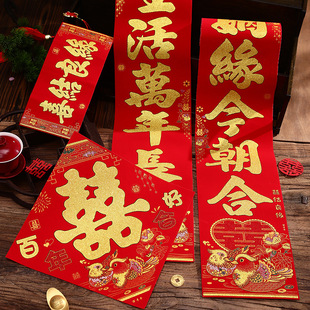 喜結良緣
活萬年長
緣今朝合
囍
百年好合